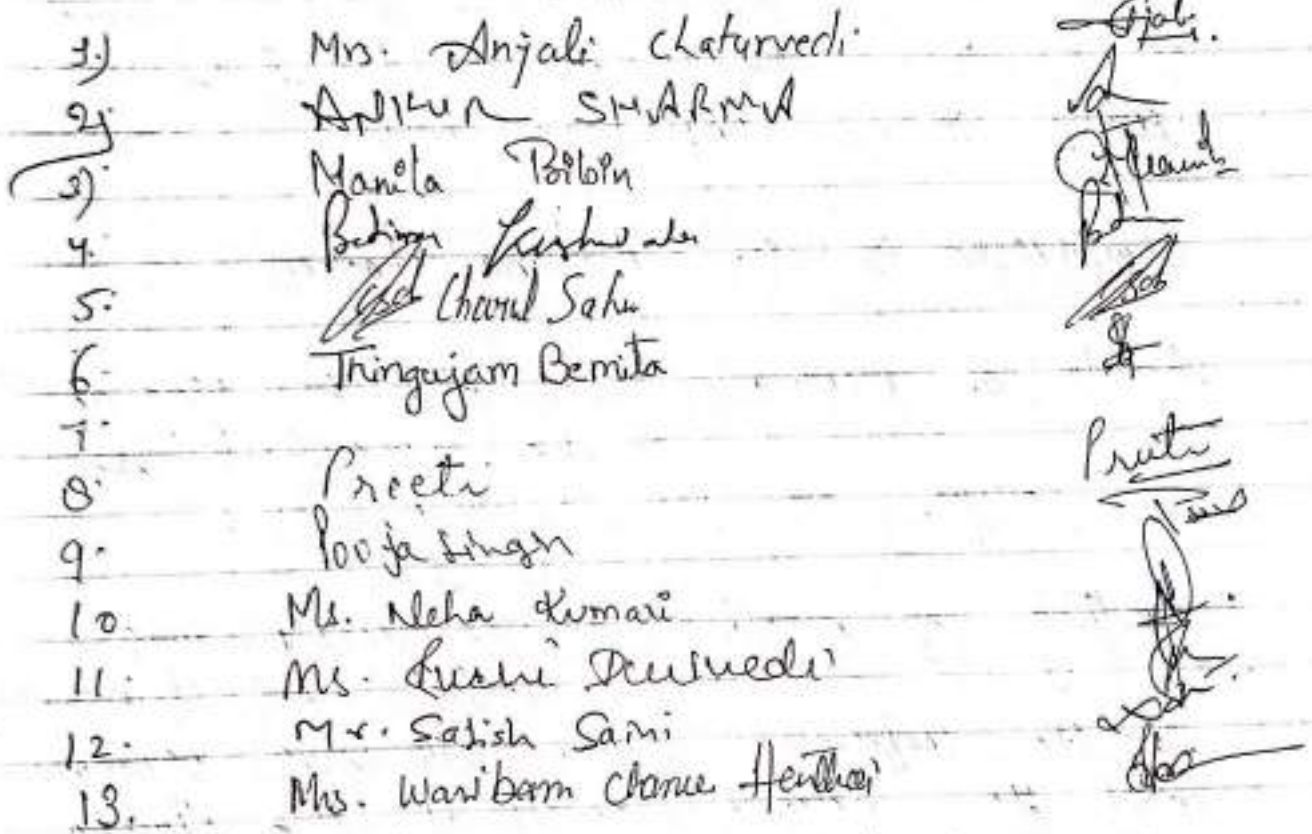 1.) Mrs. Anjali Chaturvedi
2) ANKUR SHARMA
3) Manila Bibin
4.
5. Charul Sahu
6. Thingujam Bemita
7.
8. Preeti Preeti
9. Pooja Singh
10. Ms. Neha Kumari
11. Ms. Dwivedi
12. Mr. Satish Saini
13. Mrs. Waribam Chanu